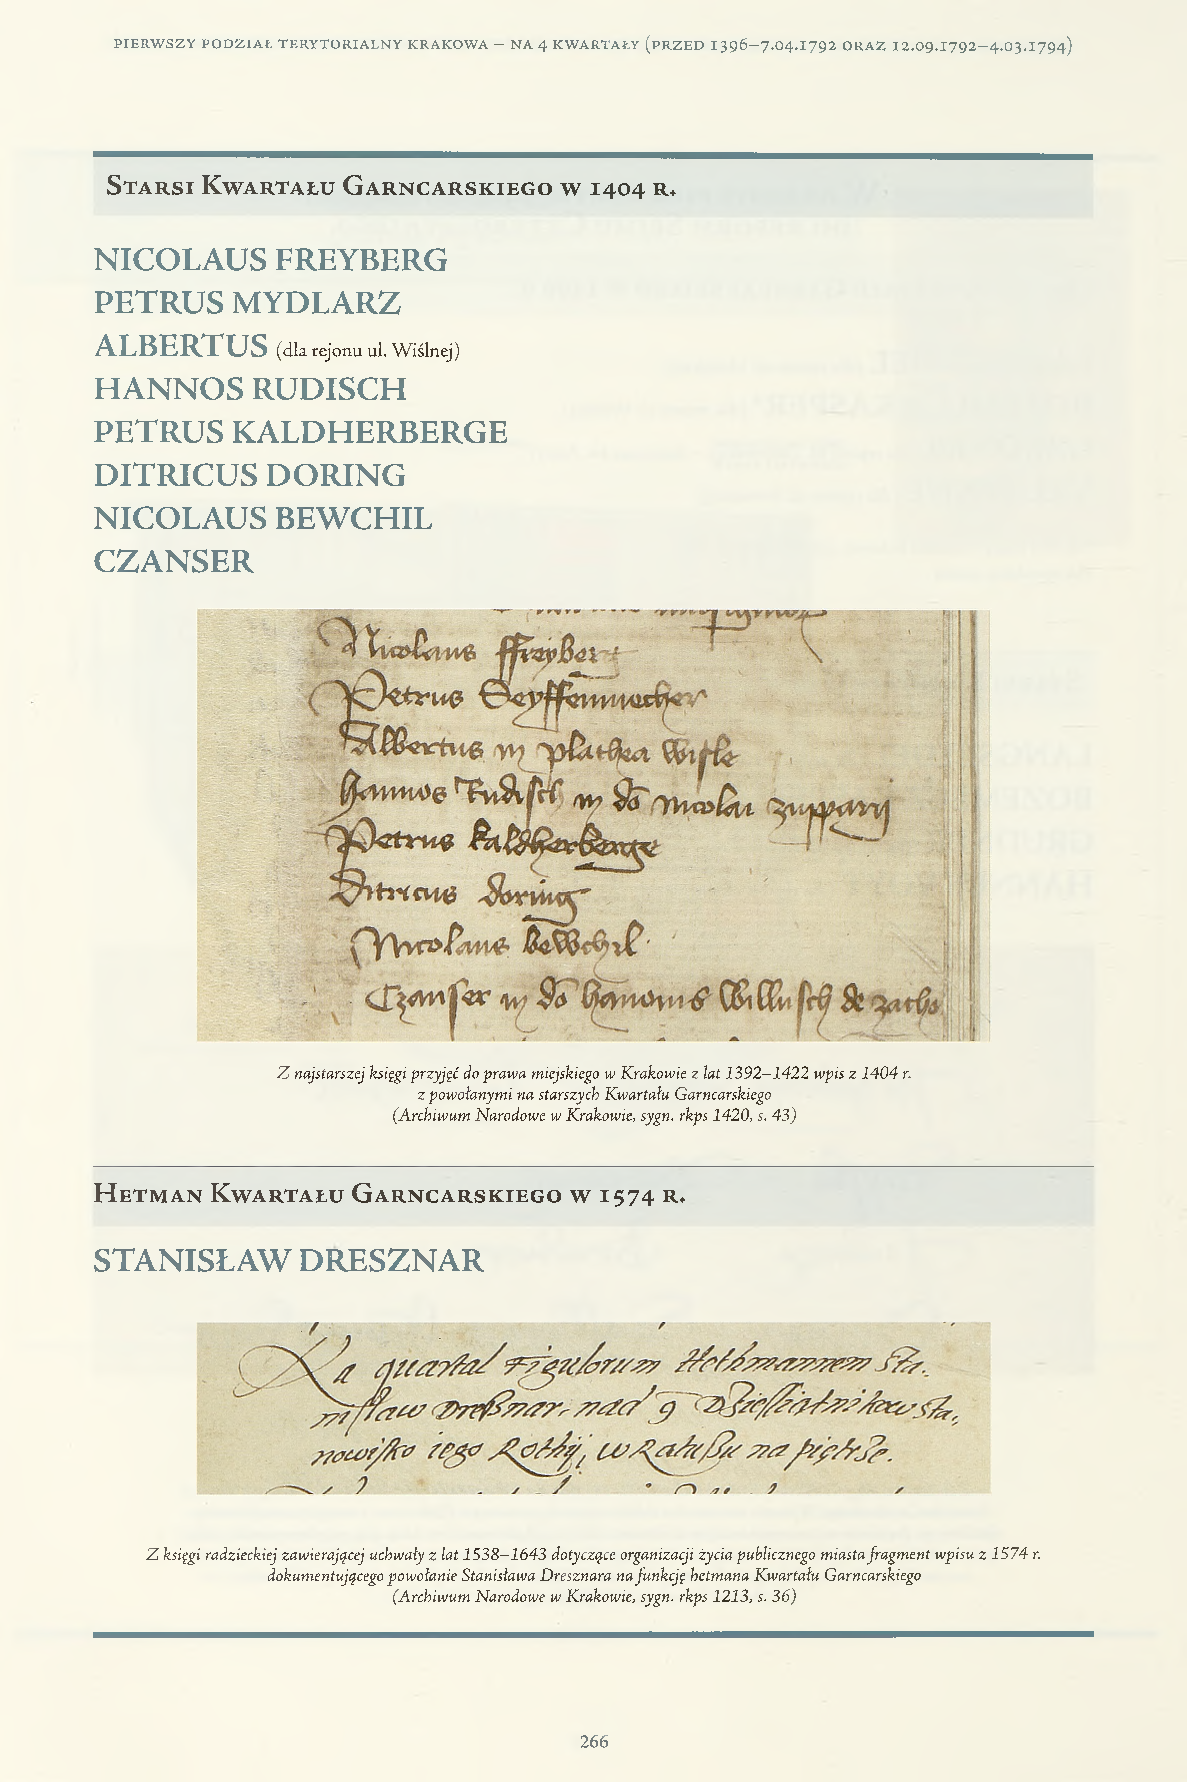 PIERWSZY PODZIAŁ TERYTORIALNY KRAKOWA – NA 4 KWARTAŁY (PRZED 1396–7.04.1792 ORAZ 12.09.1792–4.03.1794)
STARSI KWARTAŁU GARNCARSKIEGO W 1404 R.
NICOLAUS FREYBERG
PETRUS MYDLARZ
ALBERTUS (dla rejonu ul. Wiślnej)
HANNOS RUDISCH
PETRUS KALDHERBERGE
DITRICUS DORING
NICOLAUS BEWCHIL
CZANSER
Nicolaus ffreyberg
Petrus Seyffenmecher
Albertus in plathea wisle
hannos Rudisch in do nicolai zupparij
Petrus kaldherberge
Ditricus doring
Nicolaus bewchil
Czanser in do hannonis Willusch de zacho
Z najstarszej księgi przyjęć do prawa miejskiego w Krakowie z lat 1392–1422 wpis z 1404 r.
z powołanymi na starszych Kwartału Garncarskiego
(Archiwum Narodowe w Krakowie, sygn. rkps 1420, s. 43)
HETMAN KWARTAŁU GARNCARSKIEGO W 1574 R.
STANISŁAW DRESZNAR
Na quartal Figulorum Hethmannem Sta:
nisław Dreßnar, nad 9 Dziessiątnikow sta,
nowisko iego Rothÿ, w Ratußu na piętrze.
Z księgi radzieckiej zawierającej uchwały z lat 1538–1643 dotyczące organizacji życia publicznego miasta fragment wpisu z 1574 r.
dokumentującego powołanie Stanisława Dresznara na funkcję hetmana Kwartału Garncarskiego
(Archiwum Narodowe w Krakowie, sygn. rkps 1213, s. 36)
266